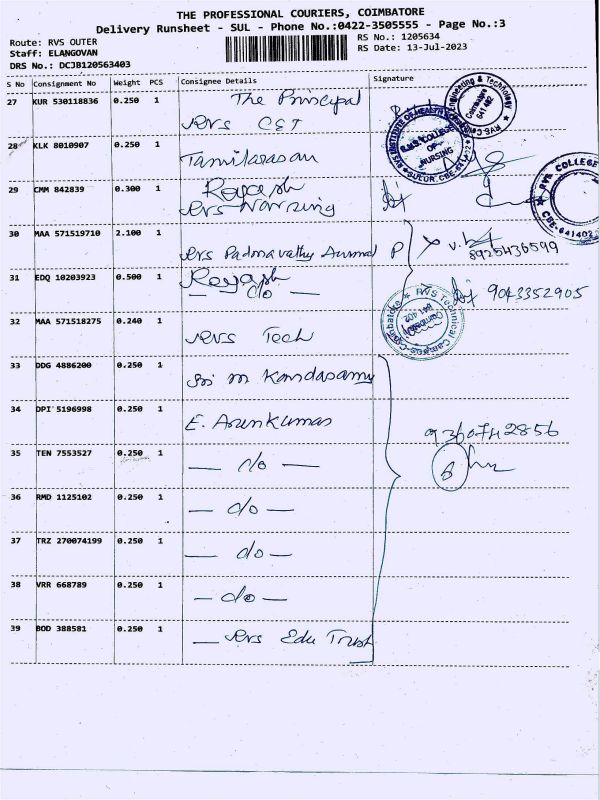 THE PROFESSIONAL COURIERS, COIMBATORE
Delivery Runsheet - SUL - Phone No.:0422-3505555 - Page No.:3
Route: RVS OUTER
RS No.: 1205634
Staff: ELANGOVAN
RS Date: 13-Jul-2023
DRS No.: DCJB120563403
S No Consignment No Weight PCS Consignee Details Signature
27 KUR 530118836 0.250 1 The Principal
RVS CET
28 KLK 8010907 0.250 1
Tamilarasan
29 CMM 842839 0.300 1
RVS Nursing
30 MAA 571519710 2.100 1
RVS Padmavathy Ammal P
8925436599
31 EDQ 10203923 0.500 1
— do — 9043352905
32 MAA 571518275 0.240 1
RVS Tech
33 DDG 4886200 0.250 1
Sri M Kandasamy
34 DPI 5196998 0.250 1
E. Arunkumar
35 TEN 7553527 0.250 1
— do —
36 RMD 1125102 0.250 1
— do —
37 TRZ 270074199 0.250 1
— do —
38 VRR 668789 0.250 1
— do —
39 BOD 388581 0.250 1
— RVS Edu Trust